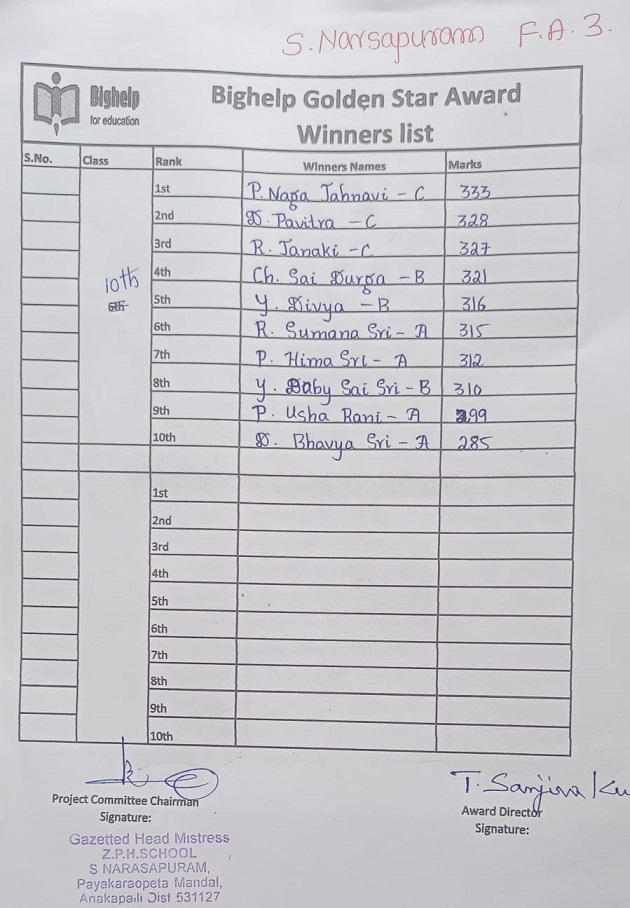 S. Narsapuram F.A.3.
Bighelp
for education
Bighelp Golden Star Award
Winners list
S.No. Class Rank Winners Names Marks
1st P. Naga Jahnavi - C 333
2nd D. Pavitra - C 328
3rd R. Janaki - C 327
10th 4th Ch. Sai Durga - B 321
6th 5th Y. Divya - B 316
6th R. Sumana Sri - A 315
7th P. Hima Sri - A 312
8th Y. Baby Sai Sri - B 310
9th P. Usha Rani - A 299
10th D. Bhavya Sri - A 285
1st
2nd
3rd
4th
5th
6th
7th
8th
9th
10th
T. Sanjiva Ku
Project Committee Chairman
Signature:
Award Director
Signature:
Gazetted Head Mistress
Z.P.H.SCHOOL
S NARASAPURAM,
Payakaraopeta Mandal,
Anakapalli Dist 531127